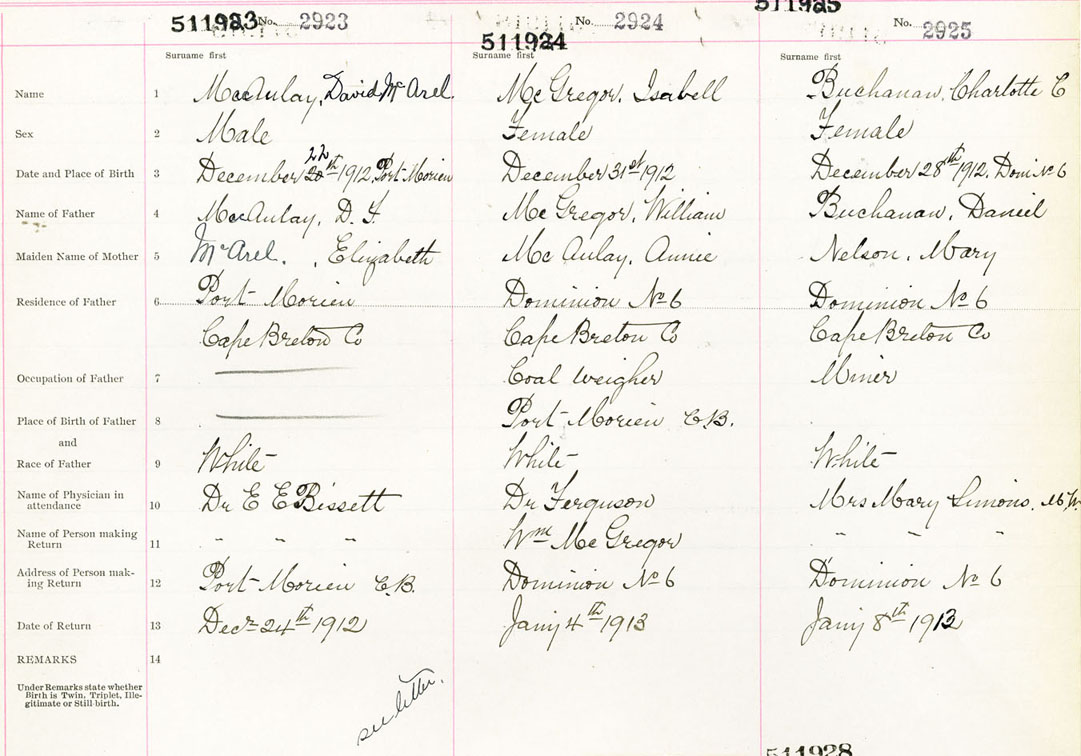 511923 No. 2923
511924 No. 2924
511925 No. 2925
Surname first Surname first Surname first
Name 1 MacAulay, David McArel. McGregor, Isabell Buchanan, Charlotte C
Sex 2 Male Female Female
22
Date and Place of Birth 3 December 20th 1912, Port Morien December 31st 1912 December 28th 1912, Dom No 6
Name of Father 4 MacAulay, D. F. McGregor, William Buchanan, Daniel
Maiden Name of Mother 5 McArel. , Elizabeth McAulay, Annie Nelson, Mary
Residence of Father 6 Port Morien Dominion No 6 Dominion No 6
Cape Breton Co Cape Breton Co Cape Breton Co
Occupation of Father 7 Coal Weigher Miner
Place of Birth of Father 8 Port Morien C.B.
and
Race of Father 9 White White White
Name of Physician in
attendance 10 Dr E E Bissett Dr Ferguson Mrs Mary Simons, M.W.
Name of Person making
Return 11 " " " Wm McGregor " " "
Address of Person mak-
ing Return 12 Port Morien C.B. Dominion No 6 Dominion No 6
Date of Return 13 Decr 24th 1912 Jany 4th 1913 Jany 8th 1913
REMARKS 14
Under Remarks state whether
Birth is Twin, Triplet, Ille-
gitimate or Still-birth.
see letter.
511928